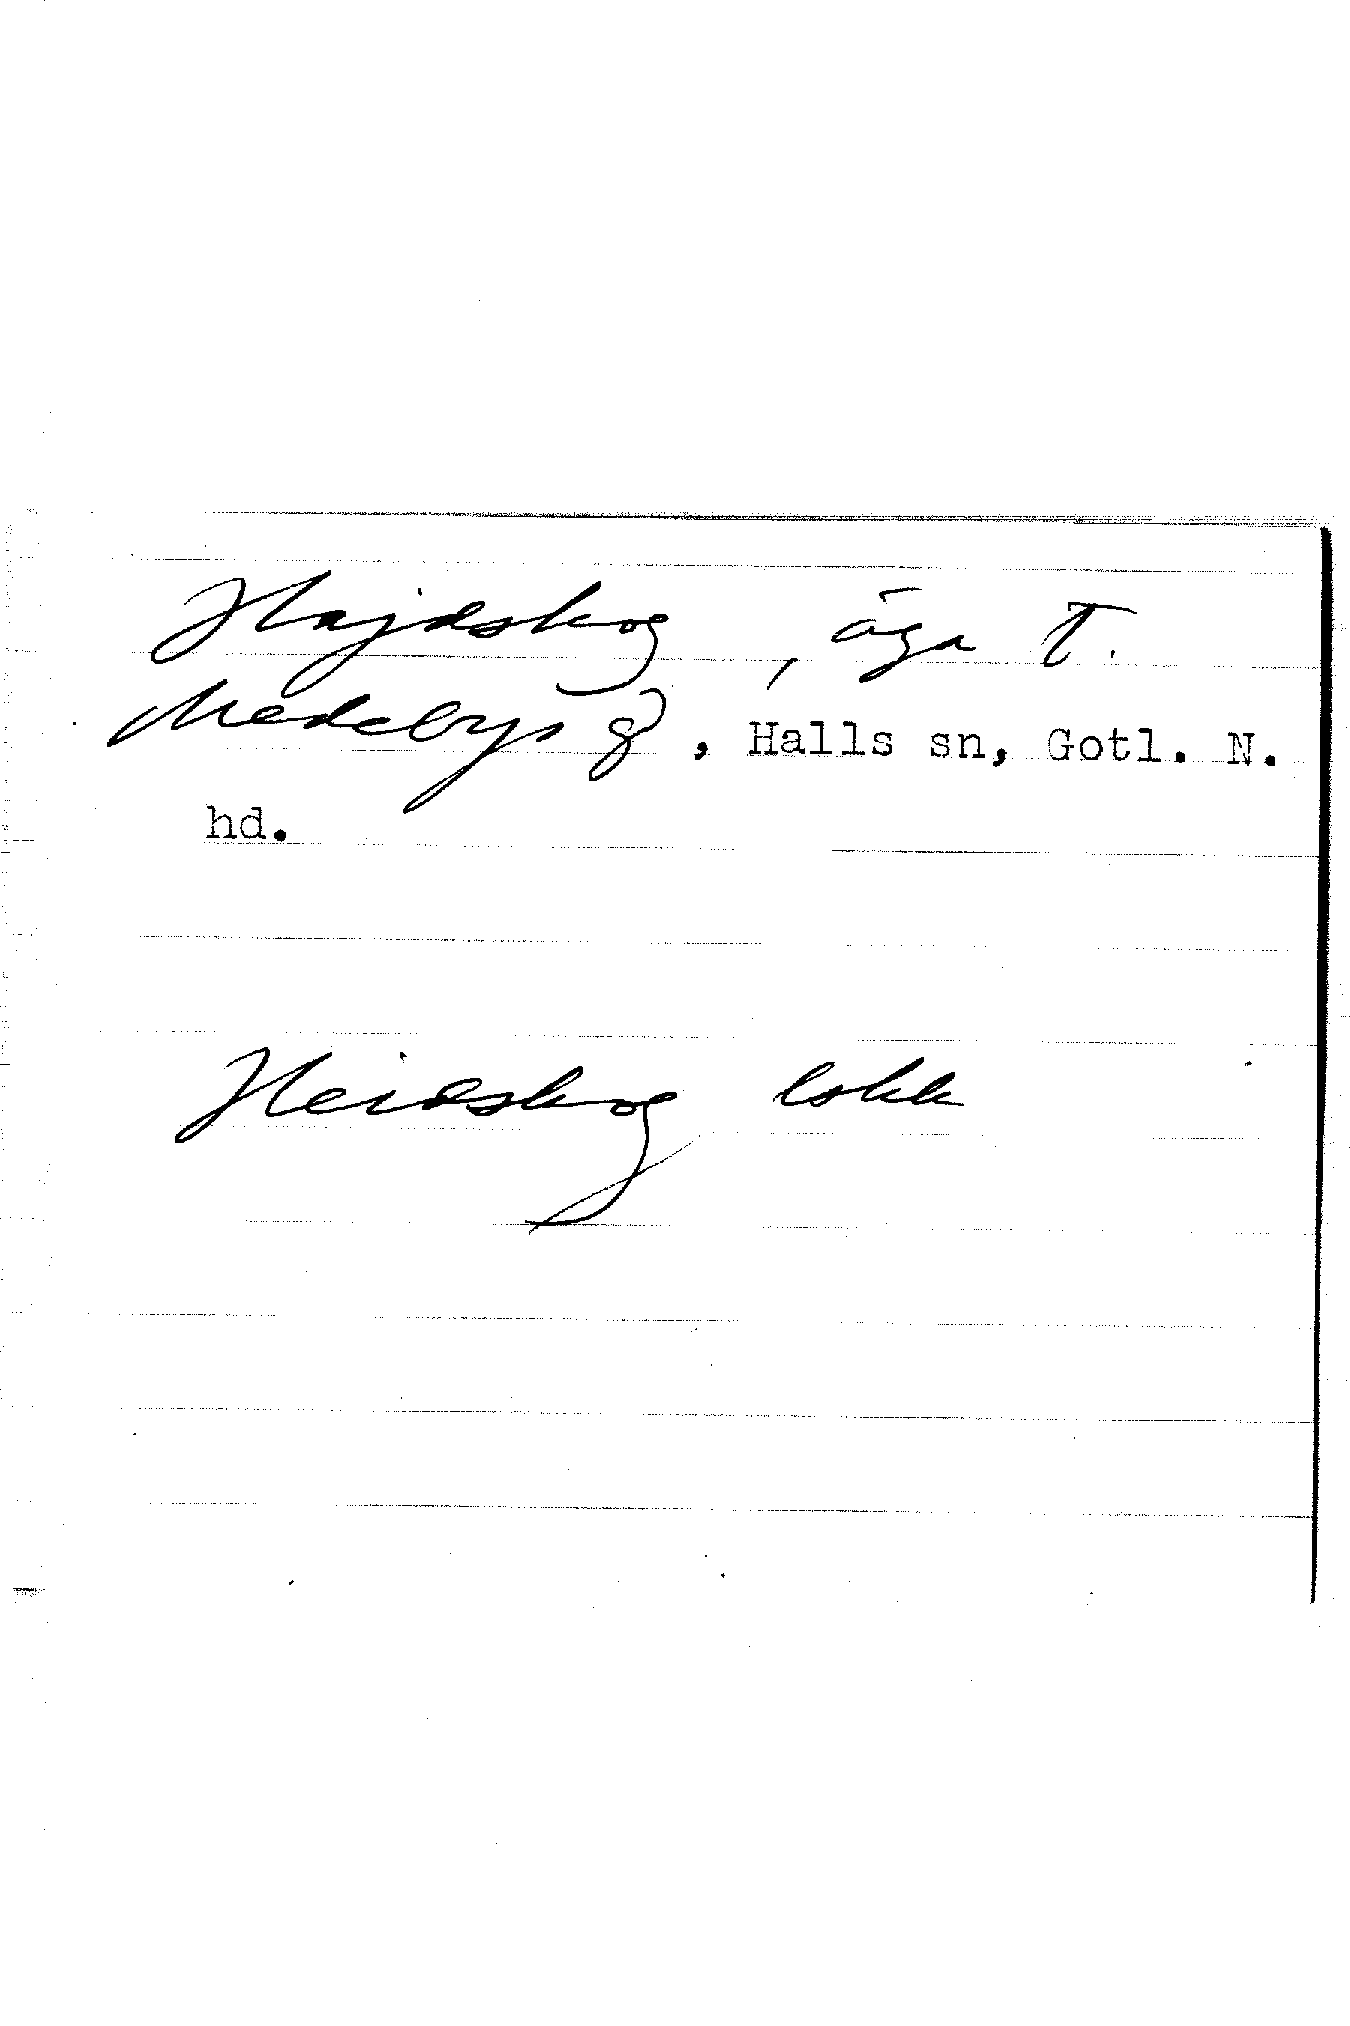 Hajdskog, äga t.
Medebys g, Halls sn, Gotl. N.
hd.
Heidskog lokk